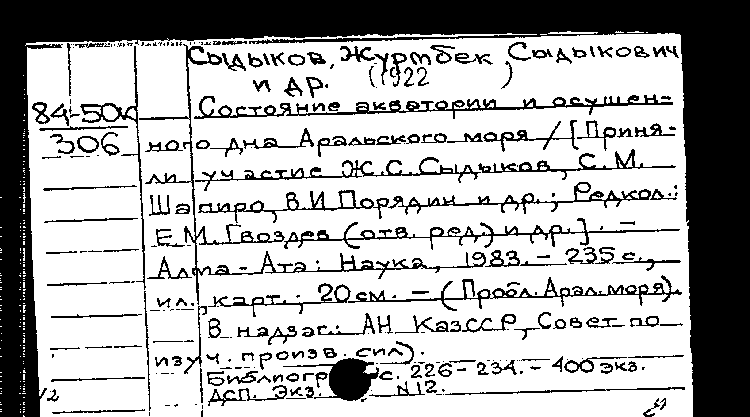 Сыдыков, Журтбек Сыдыкович
и др. (1922 )
84-50к
306
Состояние акватории и осушен-
ного дна Аральского моря / [Приня-
ли участие Ж.С. Сыдыков, С.М.
Шапиро, В.И Порядин и др.; Редкол.:
Е.М. Гвоздев (отв. ред.) и др.]. –
Алма-Ата: Наука, 1983. – 235 с.,
ил., карт.; 20 см. – (Пробл. Арал. моря).
В надзаг.: АН КазССР, Совет по
изуч. произв. сил).
Библиогр с. 226-234. – 400 экз.
ДСП. Экз. N12.